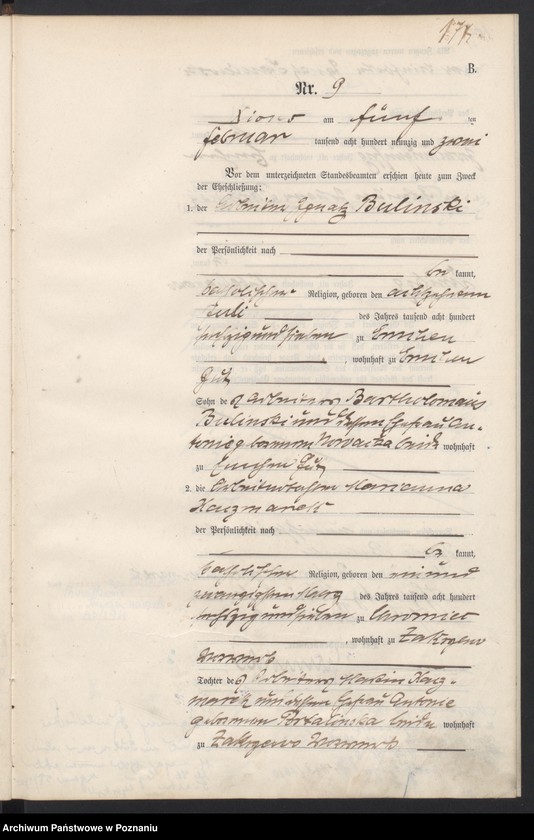 177.
B.
Nr. 9
am fünf ten
Februar tausend acht hundert neunzig und zwei
Vor dem unterzeichneten Standesbeamten erschien heute zum Zweck
der Eheschließung:
1. der Arbeiter Ignatz Bulinski
der Persönlichkeit nach
be kannt,
katholischer Religion, geboren den achtzehnten
Juli des Jahres tausend acht hundert
sechzig und sieben zu
, wohnhaft zu
Gut
Sohn des Arbeiters Bartholomäus
Bulinski und dessen Ehefrau An-
tonie geborenen Nowacka beide wohnhaft
zu Gut
2. die Arbeitertochter Marianna
Kaczmarek
der Persönlichkeit nach
be kannt,
katholischer Religion, geboren den ein und
zwanzigsten März des Jahres tausend acht hundert
sechzig und sieben zu
, wohnhaft zu Zakrzewo
Vorwerk
Tochter des Arbeiters Martin Kacz-
marek und dessen Ehefrau Antonie
geborenen beide wohnhaft
zu Zakrzewo Vorwerk
Archiwum Państwowe w Poznaniu